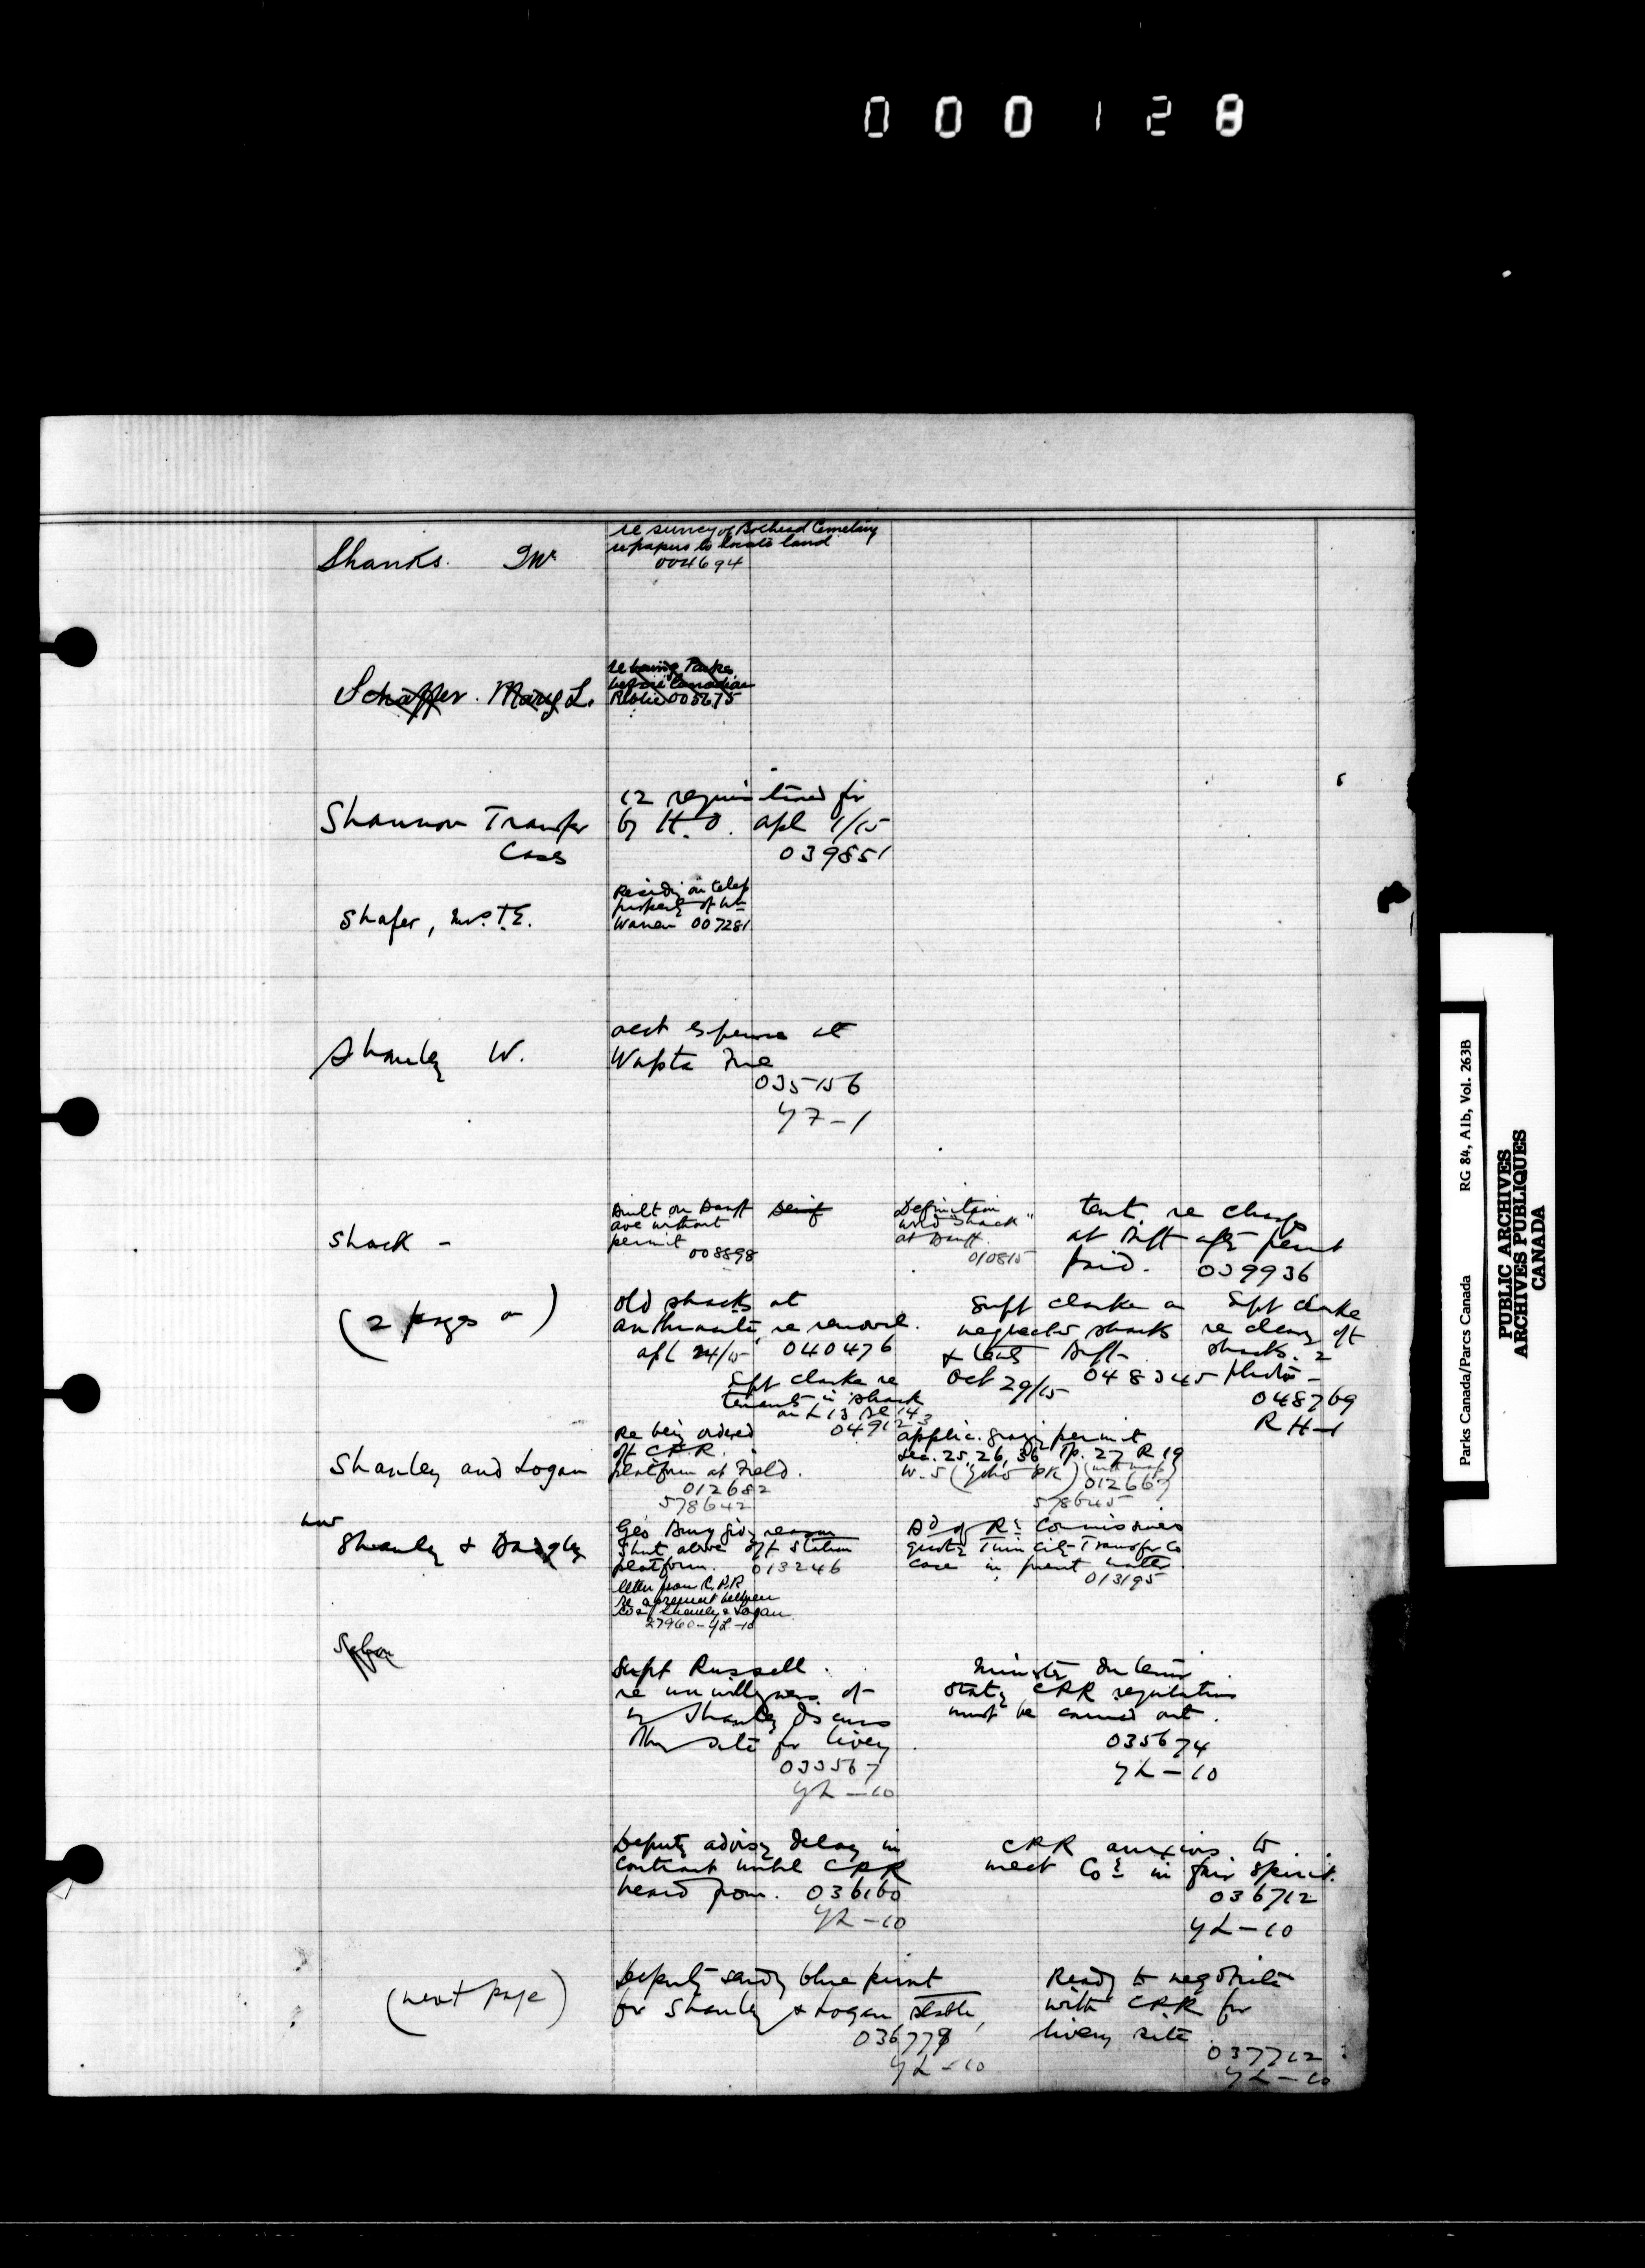 000128
Shanks. Mr
re survey of Bothead Cemetery
re papers to locate land
004694
Schaffer. Mary L.
re having Parks
before Canadian
Public 005675
Shannon Transfer
Cases
12 requisitioned for
by H.O. Apl 1/15
039851
Shafer, Mrs. T.E.
Residing on
property of Wm
Warren 007281
Shanley W.
acct expense at
Wapta Fire
035156
YF-1
Shack -
(2 pages on)
Built on Banff
ave without
permit
008898
Definition
word "Shack"
at Banff.
010815
tent, re charge
at Bff after permit
paid. 039936
old shacks at
Anthracite, re removal.
Apl 24/15 040476
Supt Clarke re
tenants in shack
on L 13 Bk 143
04912
Supt Clarke on
neglected shacks
& tents Bff-
Oct 29/15 048345
Supt Clarke
re cleang of
shacks. 2
photos -
048769
RH-1
Shanley and Logan
Re being ordered
off C.P.R.
platform at Field.
012682
578642
applic. grazing permit
Sec. 25, 26, 36 Tp. 27 R 19
W. 5 (Yoho PK) (with map)
012667
578645
now
Shanley & Dazley
Geo Bury givg reason
Shut above off station
platform. 013246
letter from C.P.R
re agreement between
Co & Shanley & Logan
27960-YL-10
Bd of Ry Commissioners
quote Twin City Transfer Co
case in present matter
013195
Supt Russell
re unwillgness of
W Shanley discuss
other site for livery
033567
YL-10
Minister Interior
statg CPR regulations
must be carried out.
035674
YL-10
Deputy advisg delay in
contract until CPR
heard from. 036160
YL-10
CPR anxious to
meet Co's in fair spirit.
036712
YL-10
(next page)
Deputy sendg blue print
for Shanley & Logan Stable,
036778
YL-10
Ready to negotiate
with CPR for
livery site
037712
YL-10
Parks Canada/Parcs Canada RG 84, Alb, Vol. 263B
PUBLIC ARCHIVES
ARCHIVES PUBLIQUES
CANADA